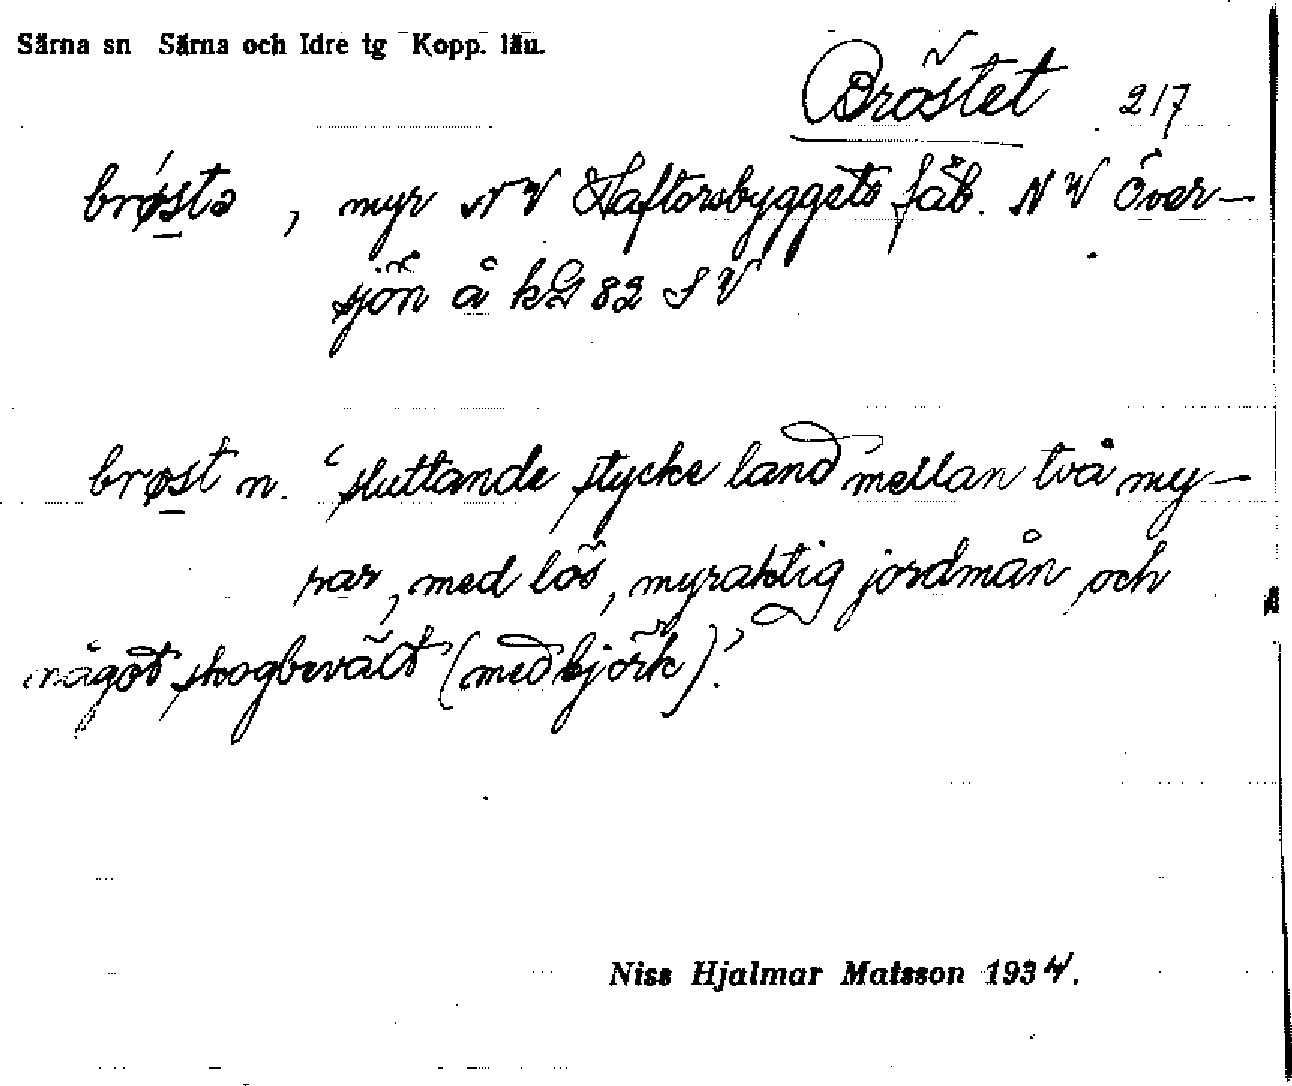 Särna sn Särna och Idre tg Kopp. län.
Bröstet 217
brǿstə, myr NV Haftorsbyggets fäb. NV Över-
sjön å kG 82 SV
brøst n. 'sluttande stycke land mellan två my-
rar, med lös, myraktig jordmån och
något skogbeväxt (med björk)'.
Niss Hjalmar Matsson 1934.